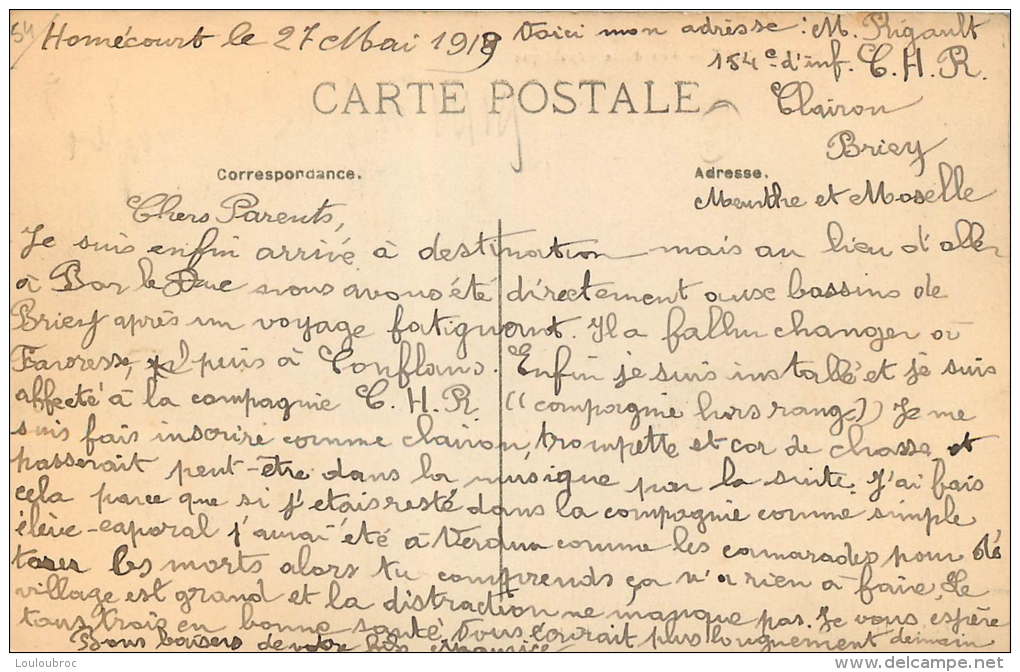 54
Homécourt le 27 Mai 1919
Voici mon adresse : M. Rigault
154e d'inf. C. H. R.
CARTE POSTALE
Clairon
Briey
Correspondance.
Adresse.
Meurthe et Moselle
Chers Parents,
Je suis enfin arrivé à destination mais au lieu d'aller
à Bar le Duc nous avons été directement aux bassins de
Briey après un voyage fatiguant. Il a fallu changer à
puis à Conflans. Enfin je suis installé et je suis
affecté à la compagnie C. H. R. ((compagnie hors rang)) Je me
suis fais inscrire comme clairon, trompette et cor de chasse, et
passerait peut-être dans la musique par la suite. J'ai fais
cela parce que si j'étais resté dans la compagnie comme simple
élève-caporal j'aurai été à Verdun comme les camarades pour dé
terrer les morts alors tu comprends ça n'a rien à faire. Le
village est grand et la distraction ne manque pas. Je vous espère
tous trois en bonne santé. Vous écrirait plus longuement demain
Bons baisers de votre fils Maurice
Loulobroc
www.delcampe.net